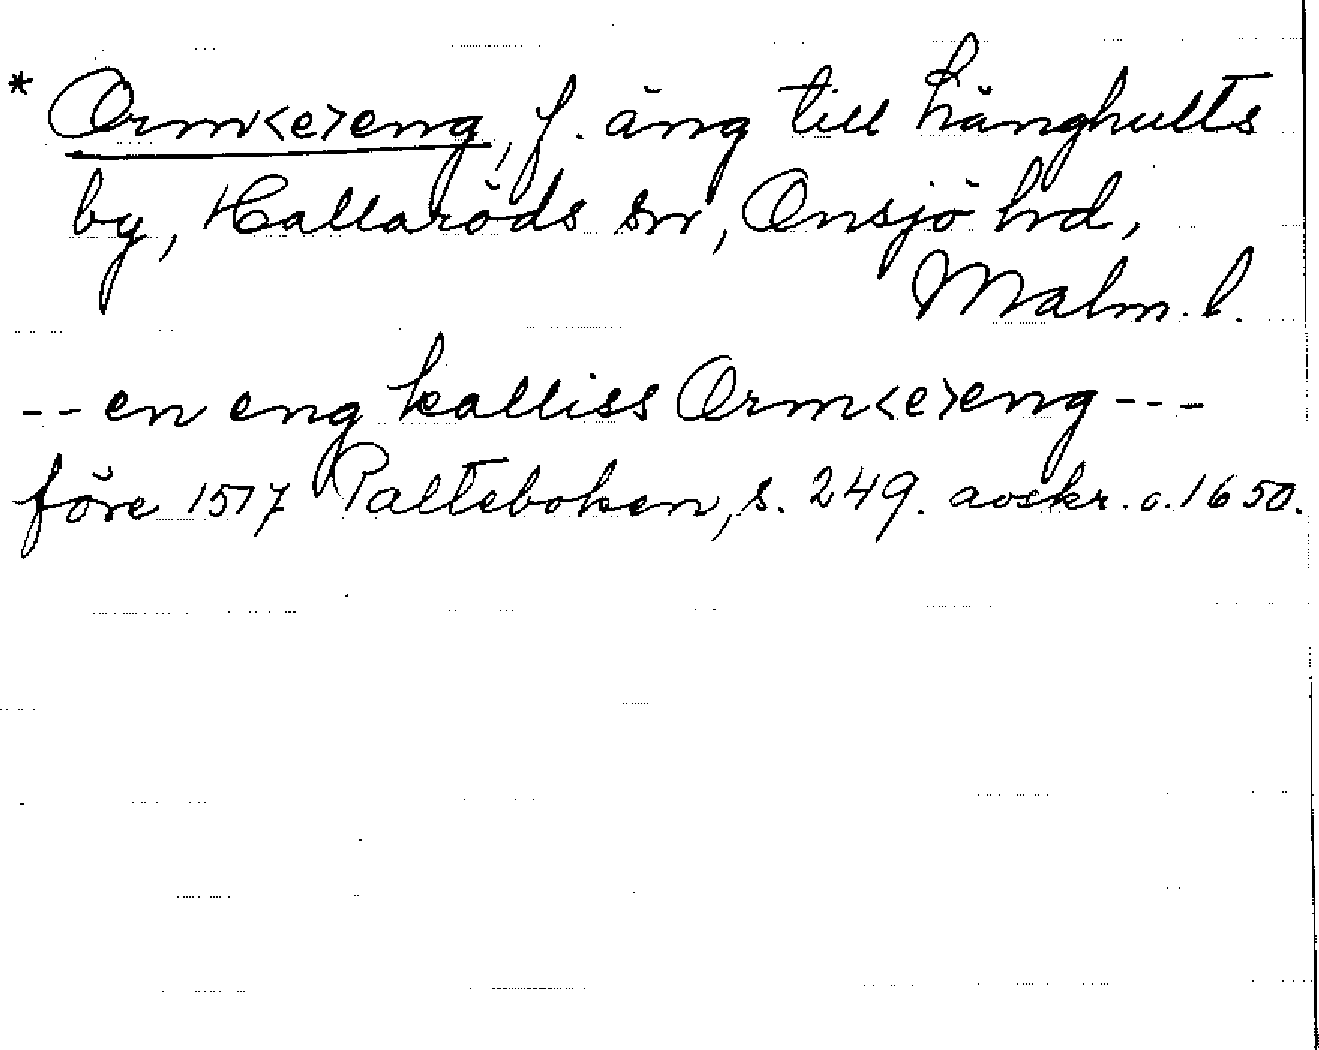 * Orm<e>eng, f. äng till Länghults
by, Hallaröds sn, Onsjö hd,
Malm. l.
-- en eng kalliss Orm<e>eng ---
före 1517 Palteboken, s. 249. avskr. c. 1650.